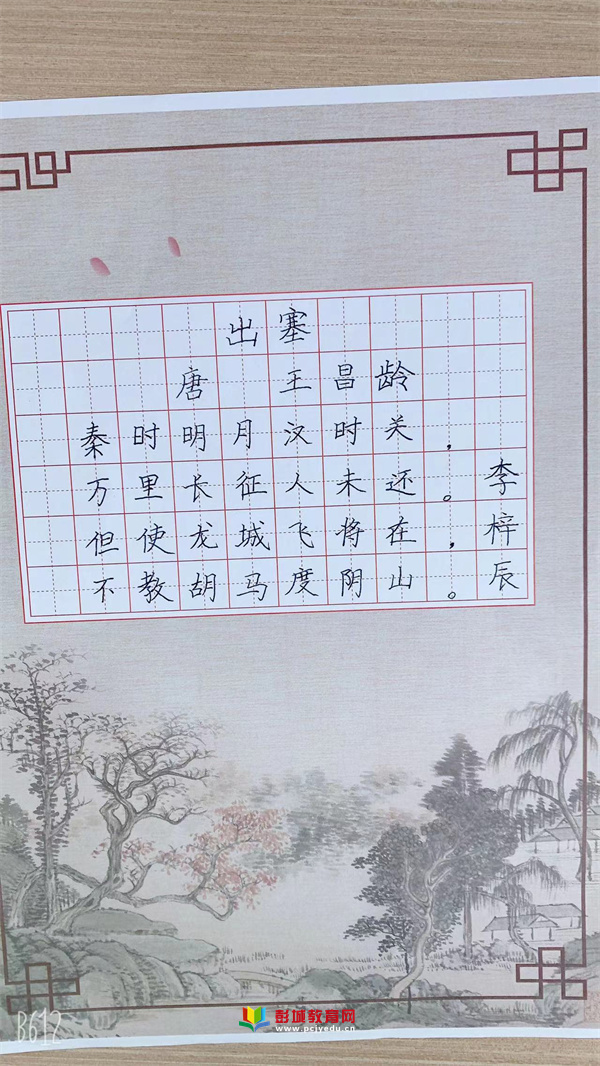 出塞
唐 王昌龄
秦时明月汉时关，
万里长征人未还。
但使龙城飞将在，
不教胡马度阴山。
李梓辰
B612
彭城教育网
www.pcjyedu.cn